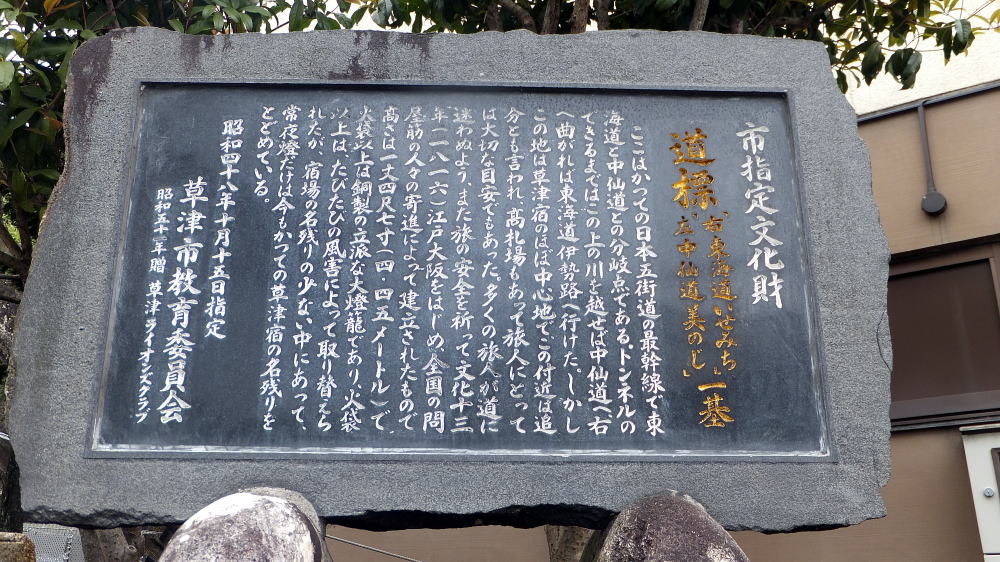 市指定文化財
道標 "右東海道いせみち"
"左中仙道美のじ" 一基
ここはかつての日本五街道の最幹線で東
海道と中仙道との分岐点である。トンネルの
できるまではこの上の川を越せば中仙道へ、右
へ曲がれば東海道伊勢路へ行けた。しかし
この地は草津宿のほぼ中心地でこの付近は追
分とも言われ、高札場もあって旅人にとって
は大切な目安でもあった。多くの旅人が道に
迷わぬよう、また旅の安全を祈って文化十三
年(一八一六)江戸大阪をはじめ、全国の問
屋筋の人々の寄進によって建立されたもので
高さは一丈四尺七寸(四・四五メートル)で、
火袋以上は銅製の立派な大燈籠であり、火袋
以上は、たびたびの風害によって取り替えら
れたが、宿場の名残りの少ない中にあって、
常夜燈だけは今もかつての草津宿の名残りを
とどめている。
昭和四十八年十月十五日指定
草津市教育委員会
昭和五十二年贈 草津ライオンズクラブ